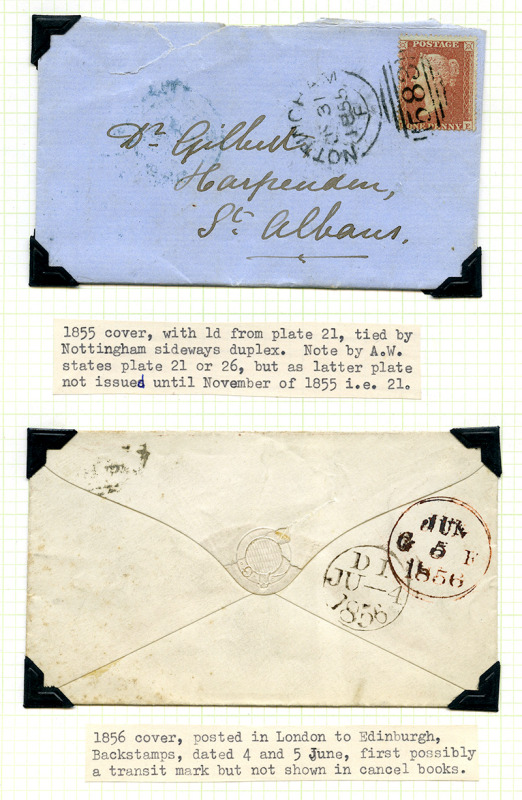 POSTAGE
ONE PENNY
583
NOTTINGHAM
31
1855
F
Dr. Gilbert
Harpenden,
St. Albans.
1855 cover, with 1d from plate 21, tied by
Nottingham sideways duplex. Note by A.W.
states plate 21 or 26, but as latter plate
not issued until November of 1855 i.e. 21.
JUN
G 5 E
1856
D I
JU—4
1856
1856 cover, posted in London to Edinburgh,
Backstamps, dated 4 and 5 June, first possibly
a transit mark but not shown in cancel books.